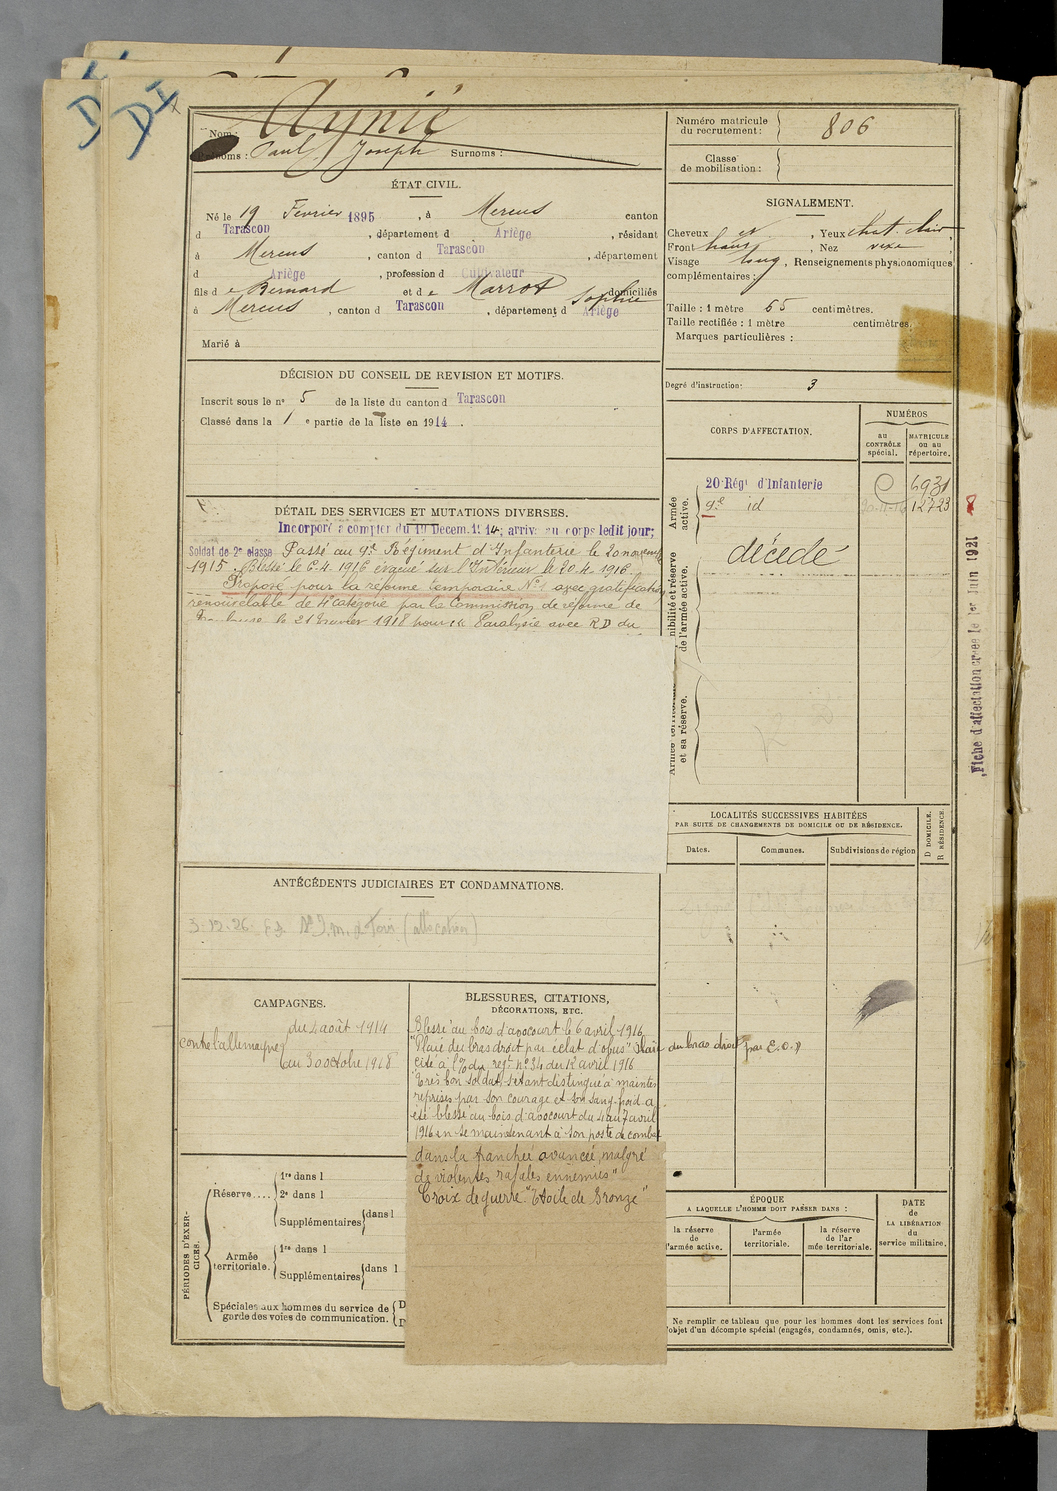 DI
DI
Nom: Aynié
Prénoms: Paul Joseph Surnoms:
ÉTAT CIVIL.
Né le 19 Fevrier 1895, à Mercus canton
d Tarascon, département d Ariège, résidant
à Mercus, canton d Tarascon, département
d Ariège, profession d Cultivateur
fils d e Bernard et d e Marrot Sophie domiciliés
à Mercus, canton d Tarascon, département d Ariège
Marié à
DÉCISION DU CONSEIL DE REVISION ET MOTIFS.
Inscrit sous le nº 5 de la liste du canton d Tarascon
Classé dans la 1 e partie de la liste en 1914.
DÉTAIL DES SERVICES ET MUTATIONS DIVERSES.
Incorporé à compter du 19 Decem. 1914; arrivé au corps ledit jour;
Soldat de 2e classe Passé au 9e Régiment d'Infanterie le 20 novembre
1915. Blessé le 6.4.1916 évacué sur l'Intérieur le 20.4.1916
Proposé pour la réforme temporaire Nº1 avec gratification
renouvelable de 4e catégorie par la Commission de réforme de
Toulouse le 21 1918 pour Paralysie avec R D du
ANTÉCÉDENTS JUDICIAIRES ET CONDAMNATIONS.
3-12-26 (allocation)
CAMPAGNES.
contre l'allemagne
du 4 août 1914
au 30 octobre 1918
BLESSURES, CITATIONS,
DÉCORATIONS, ETC.
Blessé au bois d'avocourt le 6 avril 1916
"Plaie du bras droit par éclat d'obus" Plaie du bras droit par E.O.)
Cité à l'O du regt nº 34 du 12 avril 1916
"Très bon soldat, s'étant distingué à maintes
reprises par son courage et son sang-froid, a
été blessé au bois d'avocourt du 4 au 7 avril
1916 en se maintenant à son poste de combat
dans la tranchée avancée, malgré
de violentes rafales ennemies"
Croix de guerre "Etoile de Bronze"
PÉRIODES D'EXERCICES.
Réserve....
1re dans l
2e dans l
Supplémentaires dans l
Armée territoriale.
1re dans l
Supplémentaires dans l
Spéciales aux hommes du service de
garde des voies de communication.
Numéro matricule
du recrutement: 806
Classe
de mobilisation:
SIGNALEMENT.
Cheveux, Yeux chat. clair
Front haut, Nez vexe
Visage long, Renseignements physionomiques
complémentaires:
Taille: 1 mètre 65 centimètres.
Taille rectifiée: 1 mètre centimètres.
Marques particulières:
Degré d'instruction: 3
CORPS D'AFFECTATION.
NUMÉROS
au CONTRÔLE spécial.
MATRICULE ou au répertoire.
Armée active.
20 Régt d'Infanterie 6931
9e id 12723
décédé
nibilité et réserve de l'armée active.
Armée territoriale et sa réserve.
Fiche d'affectation créée le 1er Juin 1921
LOCALITÉS SUCCESSIVES HABITÉES
PAR SUITE DE CHANGEMENTS DE DOMICILE OU DE RÉSIDENCE.
Dates.
Communes.
Subdivisions de région
D DOMICILE.
R RÉSIDENCE.
ÉPOQUE
A LAQUELLE L'HOMME DOIT PASSER DANS:
la réserve de l'armée active.
l'armée territoriale.
la réserve de l'armée territoriale.
DATE
DE LA LIBÉRATION
du service militaire.
Ne remplir ce tableau que pour les hommes dont les services font
l'objet d'un décompte spécial (engagés, condamnés, omis, etc.).